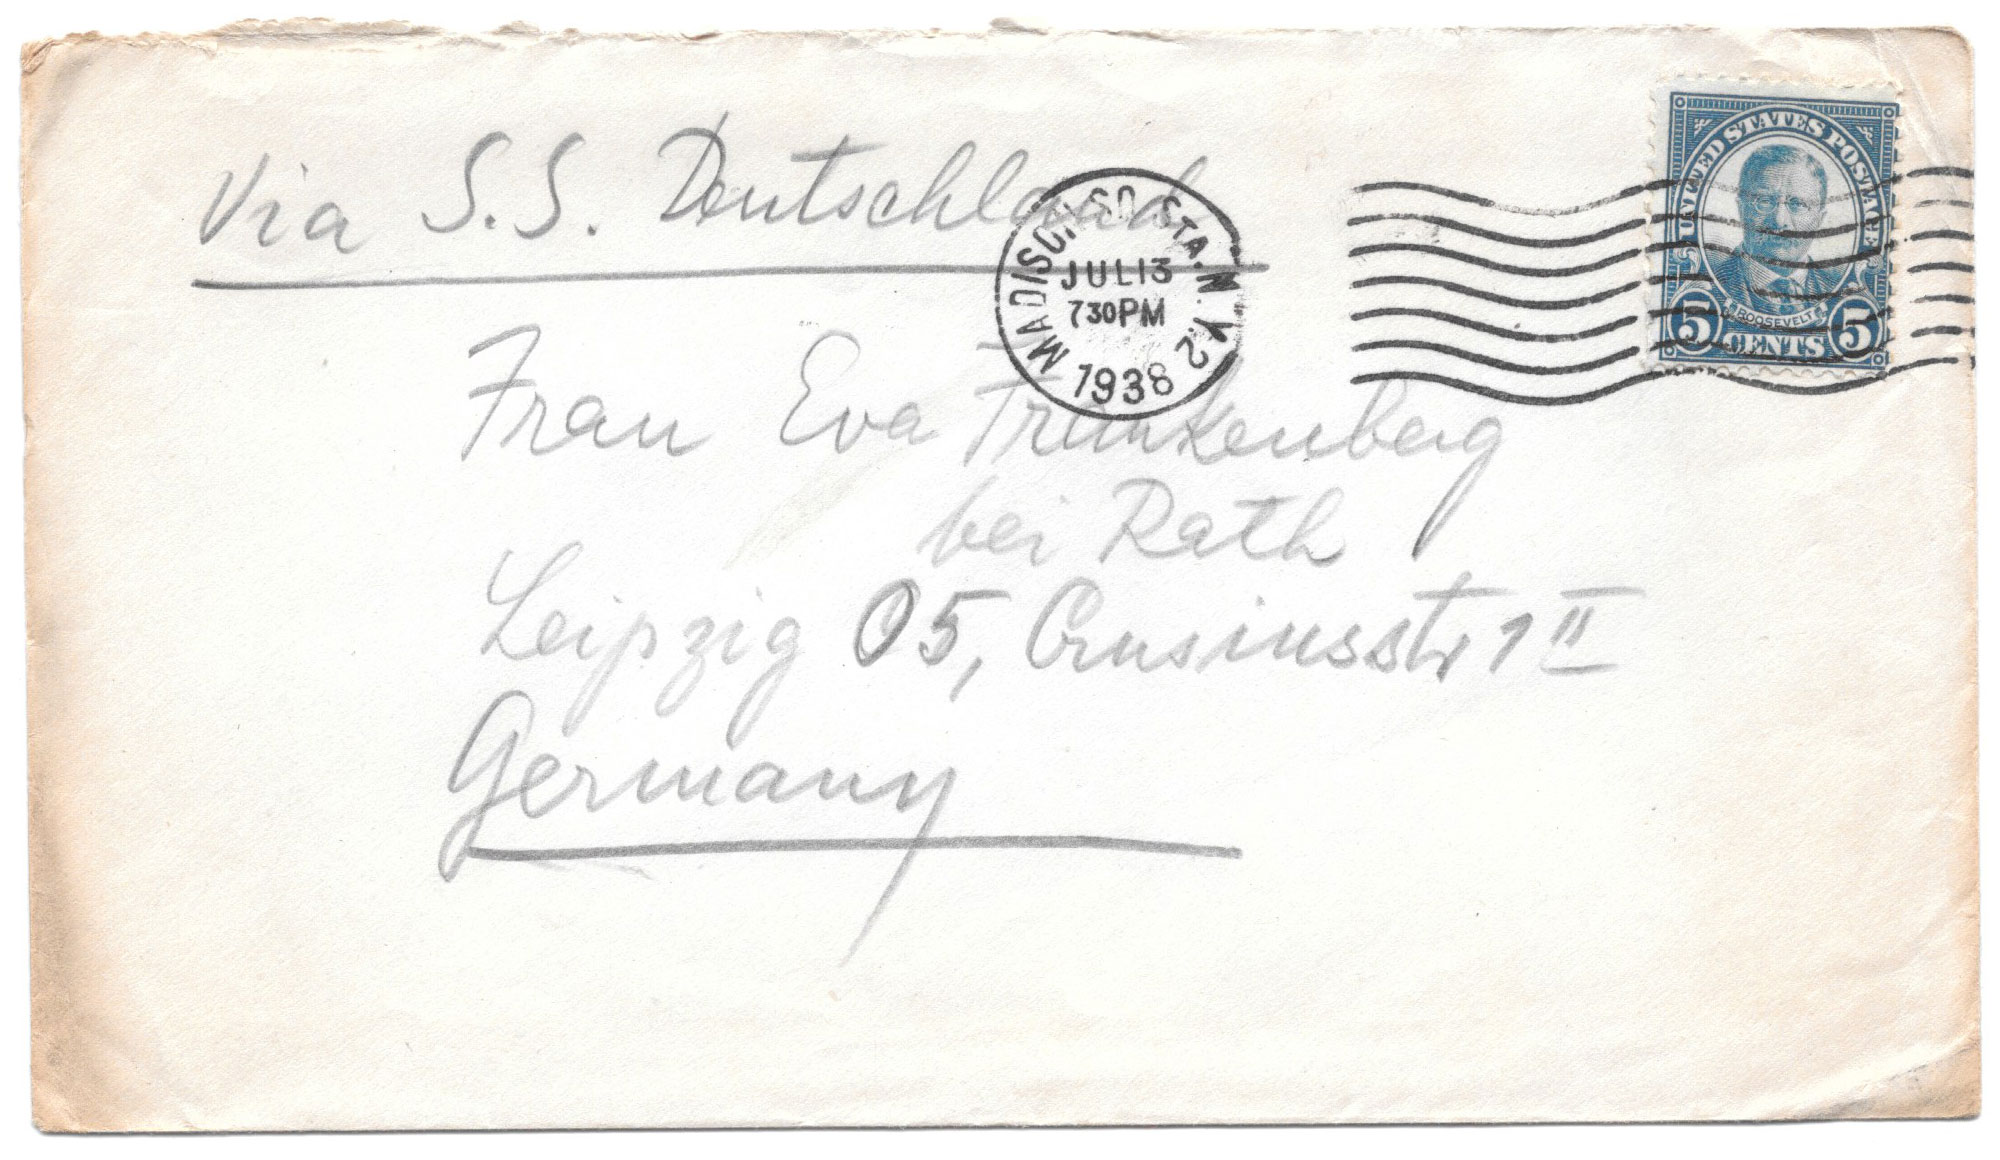 Via S.S. Deutschland
MADISON SQ. STA. N.Y. 2
JUL 13
730 PM
1938
UNITED STATES POSTAGE
ROOSEVELT
5 CENTS 5
Frau Eva Frankenberg
bei Rath
Leipzig O5, Crusiusstr 1 II
Germany